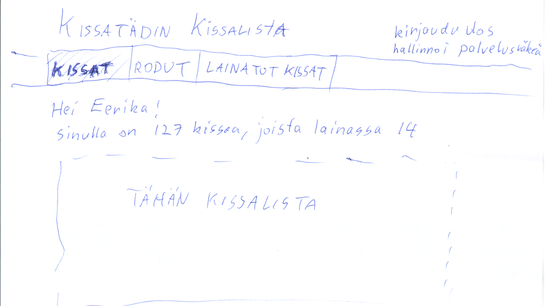 KISSATÄDIN KISSALISTA
kirjaudu ulos
hallinnoi palveluskäkeä
KISSAT RODUT LAINATUT KISSAT
Hei Eerika!
sinulla on 127 kissaa, joista lainassa 14
TÄHÄN KISSALISTA